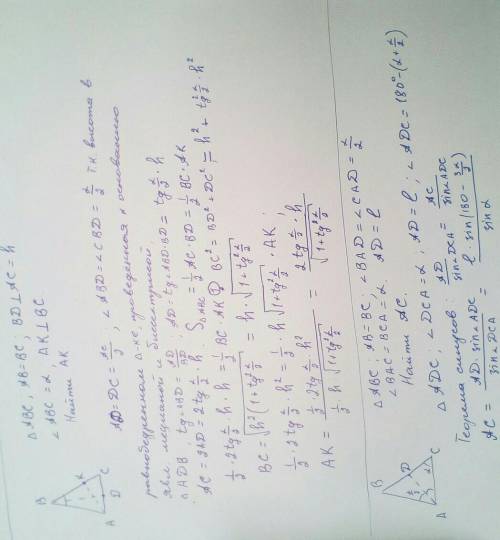 △ABC; AB=BC; BD⊥AC=h
∠ABC=α, AK⊥BC
Найти AK
B
K
A D C
AD=DC=AC/2; ∠ABD=∠CBD=α/2 т.к высота в
равнобедренном Δ-ке, проведенная к основанию
явл медианой и биссектрисой.
△ADB: tg∠ABD=AD/BD; AD=tg∠ABD·BD=tg α/2·h
AC=2AD=2tg α/2·h. S△ABC=1/2 AC·BD=1/2 BC·AK
1/2·2tg α/2·h·h=1/2 BC·AK BC²=BD²+DC²=h²+tg² α/2·h²
BC=√(h²(1+tg² α/2))=h·√(1+tg² α/2)
1/2·2tg α/2·h²=1/2·h·√(1+tg² α/2)·AK;
AK=(1/2·2tg α/2·h²)/(1/2·h·√(1+tg² α/2))=(2tg α/2·h)/√(1+tg² α/2)
△ABC; AB=BC; ∠BAD=∠CAD=α/2
∠BAC=∠BCA=α, AD=l
Найти AC.
B
D
A C
△ADC, ∠DCA=α; AD=l; ∠ADC=180°-(α+α/2)
Теорема синусов: AD/sin∠DCA=AC/sin∠ADC
AC=(AD·sin∠ADC)/sin∠DCA=(l·sin(180-3α/2))/sinα